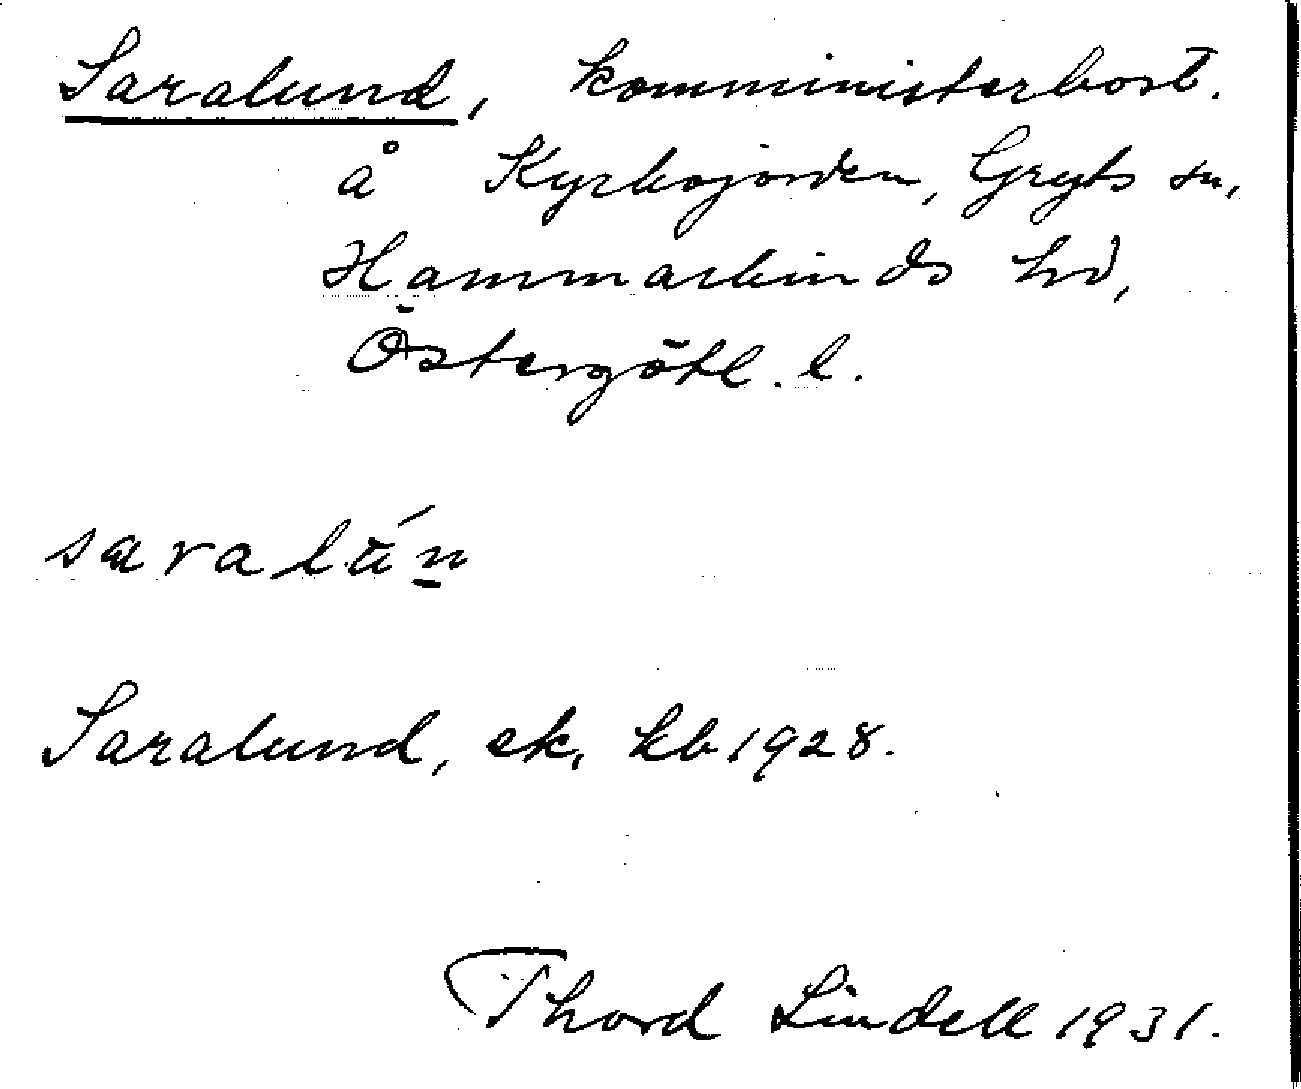 Saralund, komministerbost.
å Kyrkojorden, Gryts sn,
Hammarkinds hd,
Östergötl. l.
saralún
Saralund, ek, kb 1928.
Thord Lindell 1931.